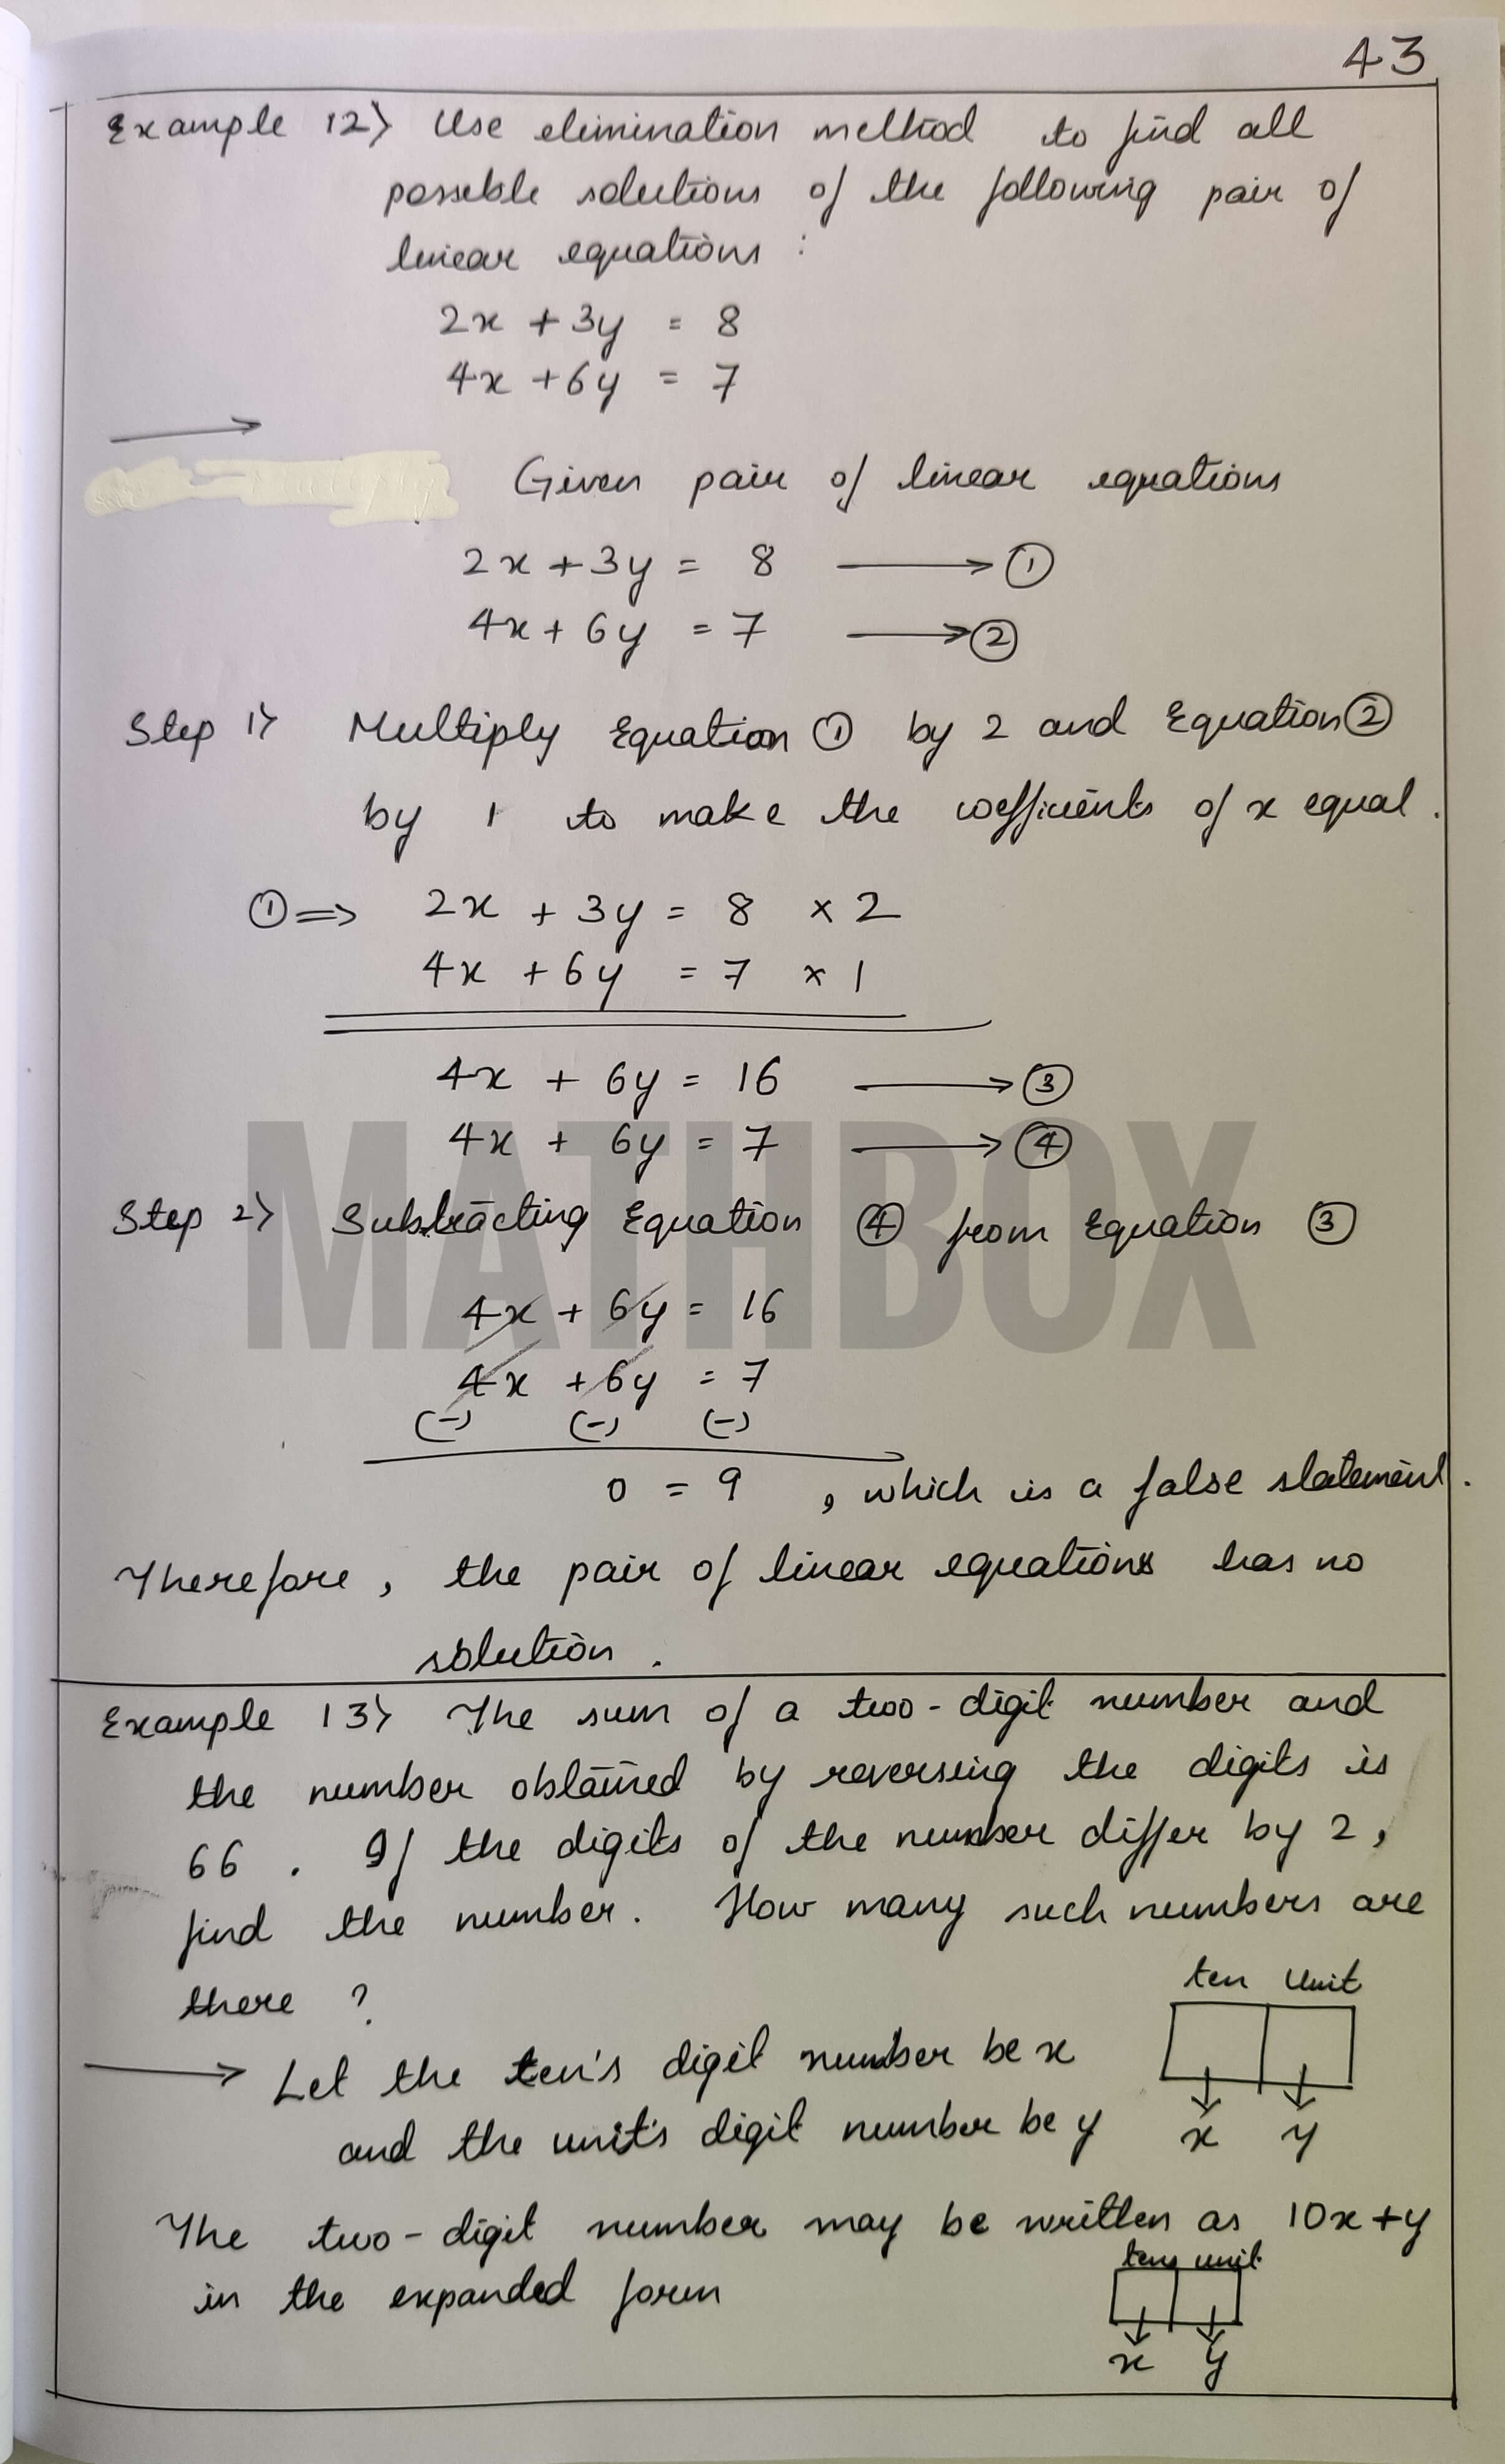 43
Example 12) Use elimination method to find all
possible solutions of the following pair of
linear equations :
2x + 3y = 8
4x + 6y = 7
Given pair of linear equations
2x + 3y = 8 ⟶ ①
4x + 6y = 7 ⟶ ②
Step 1) Multiply Equation ① by 2 and Equation ②
by 1 to make the coefficients of x equal.
① ⇒ 2x + 3y = 8 × 2
4x + 6y = 7 × 1
4x + 6y = 16 ⟶ ③
4x + 6y = 7 ⟶ ④
MATHBOX
Step 2) Subtracting Equation ④ from Equation ③
4x + 6y = 16
4x + 6y = 7
(-) (-) (-)
0 = 9 , which is a false statement.
Therefore, the pair of linear equations has no
solution.
Example 13) The sum of a two-digit number and
the number obtained by reversing the digits is
66. If the digits of the number differ by 2,
find the number. How many such numbers are
there ?
ten Unit
⟶ Let the ten's digit number be x
and the unit's digit number be y
x y
The two-digit number may be written as 10x+y
in the expanded form
tens unit
x y